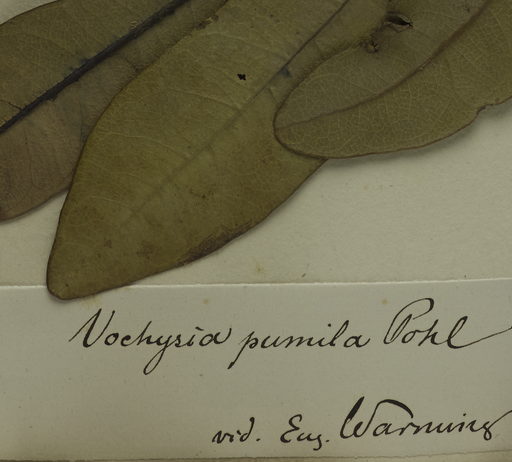 Vochysia pumila Pohl
vid. Eug. Warming